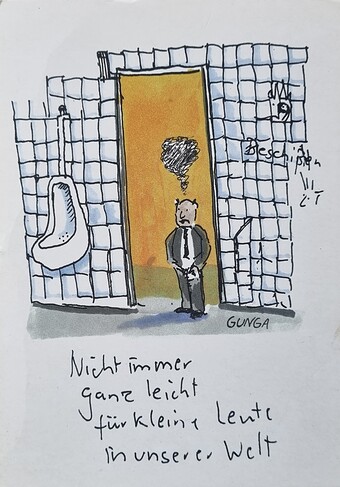 Beschißen
GUNGA
Nicht immer
ganz leicht
für kleine Leute
in unserer Welt